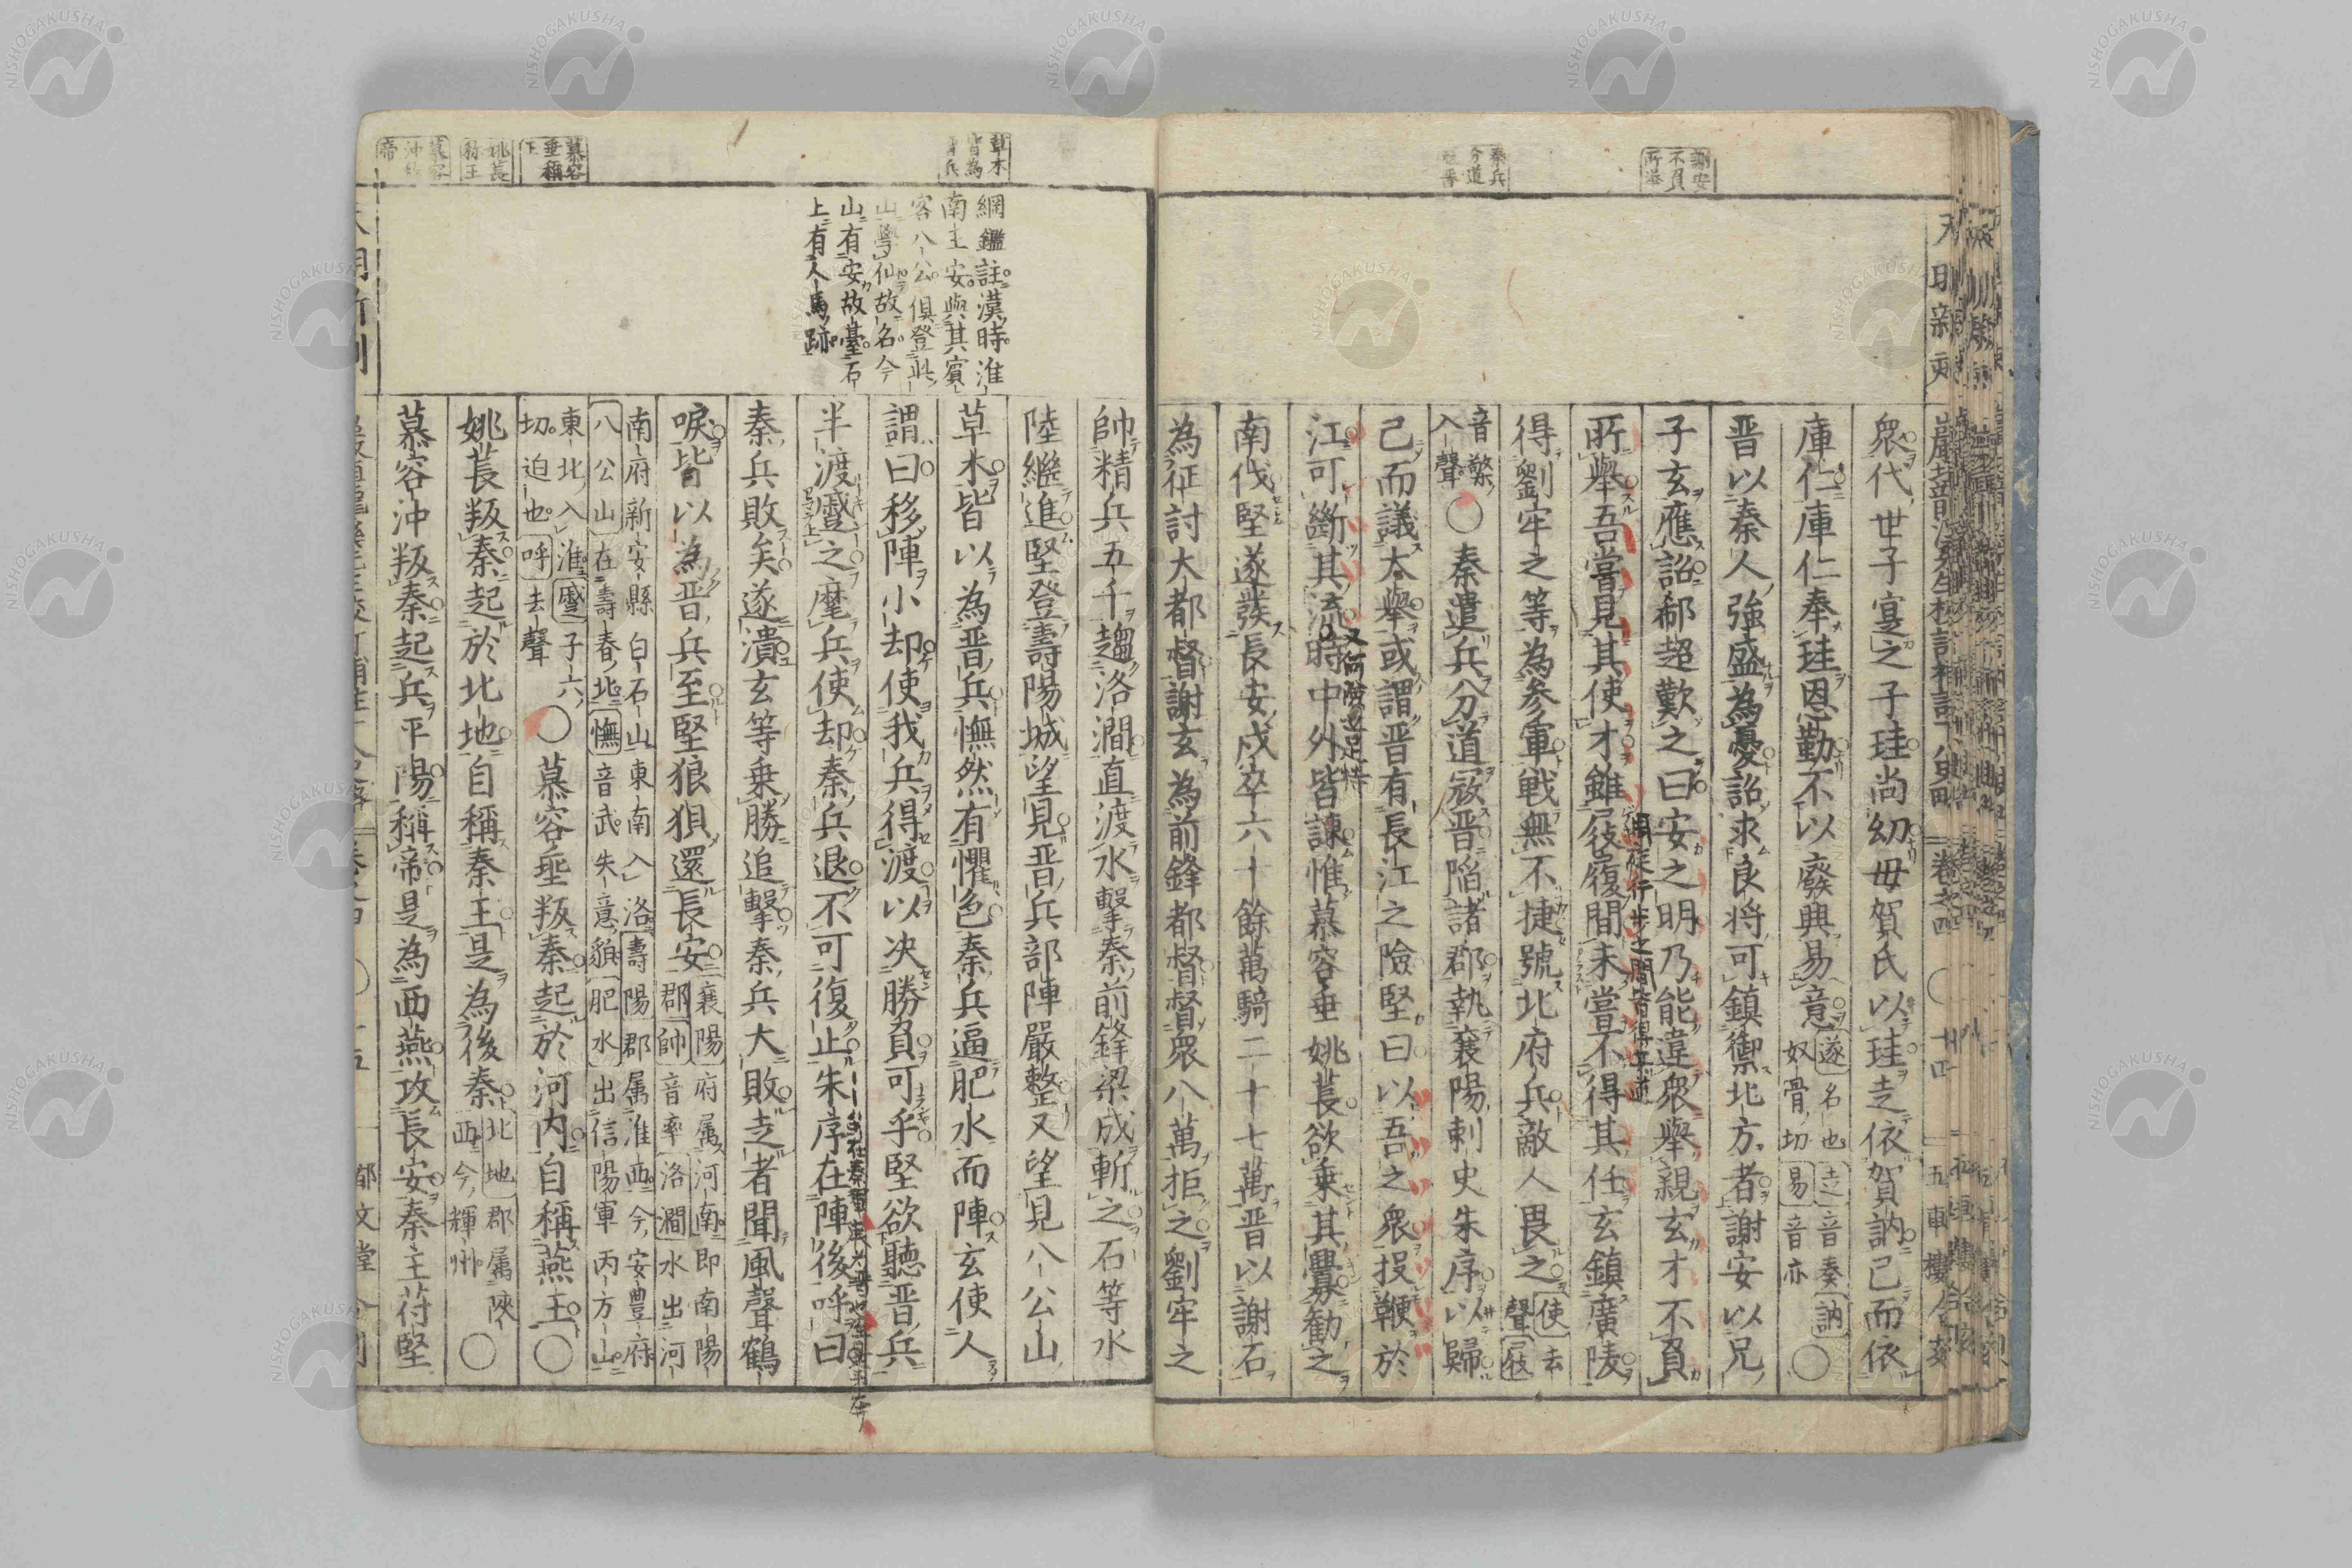 謝安
不負
所擧
秦兵
分道
衆代世子寔之子珪尚幼母賀氏以珪走依賀訥已而依
庫仁庫仁奉珪恩勤不以廢興易意
遂名也走音奏訥
奴骨切易音亦
〇
晋以秦人強盛為憂詔求良将可鎮禦北方者謝安以兄
子玄應詔郗超歎之曰安之明乃能違衆擧親玄才不負
所擧吾嘗見其使才雖屐履間未嘗不得其任玄鎮廣陵
得劉牢之等為参軍戦無不捷號北府兵敵人畏之
使去
聲屐
音擎
入聲
〇秦遣兵分道寇晋陥諸郡執襄陽刺史朱序以歸
已而議大擧或謂晋有長江之險堅曰以吾之衆投鞭於
江可斷其流時中外皆諫惟慕容垂姚萇欲乗其釁勸之
又何險之足恃
南伐堅遂發長安戍卒六十餘萬騎二十七萬晋以謝石
為征討大都督謝玄為前鋒都督督衆八萬拒之劉牢之
草木
皆為
晋兵
慕容
垂稱
王
姚萇
稱王
慕容
沖稱
帝
綱鑑註漢時淮
南王安與其賓
客八公俱登此
山學仙故名今
山有安故臺石
上有人馬跡
帥精兵五千趨洛澗直渡水擊秦前鋒梁成斬之石等水
陸繼進堅登壽陽城望見晋兵部陣嚴整又望見八公山
草木皆以為晋兵憮然有懼色秦兵逼肥水而陣玄使人
謂曰移陣小却使我兵得渡以决勝負可乎堅欲聽晋兵
半渡蹙之麾兵使却秦兵退不可復止朱序在陣後呼曰
秦兵敗矣遂潰玄等乗勝追擊秦兵大敗走者聞風聲鶴
唳皆以為晋兵至堅狼狽還長安
襄陽府属河南即南陽
郡帥音率洛澗水出河
南府新安縣白石山東南入洛壽陽郡属淮西今安豊府
八公山在壽春北憮音武失意貌肥水出信陽軍丙方山
東北入淮蹙子六
切迫也呼去聲
〇慕容垂叛秦起於河内自稱燕王〇
姚萇叛秦起於北地自稱秦王是為後秦
北地郡属陝
西今輝州
〇
慕容沖叛秦起兵平陽稱帝是為西燕攻長安秦主苻堅